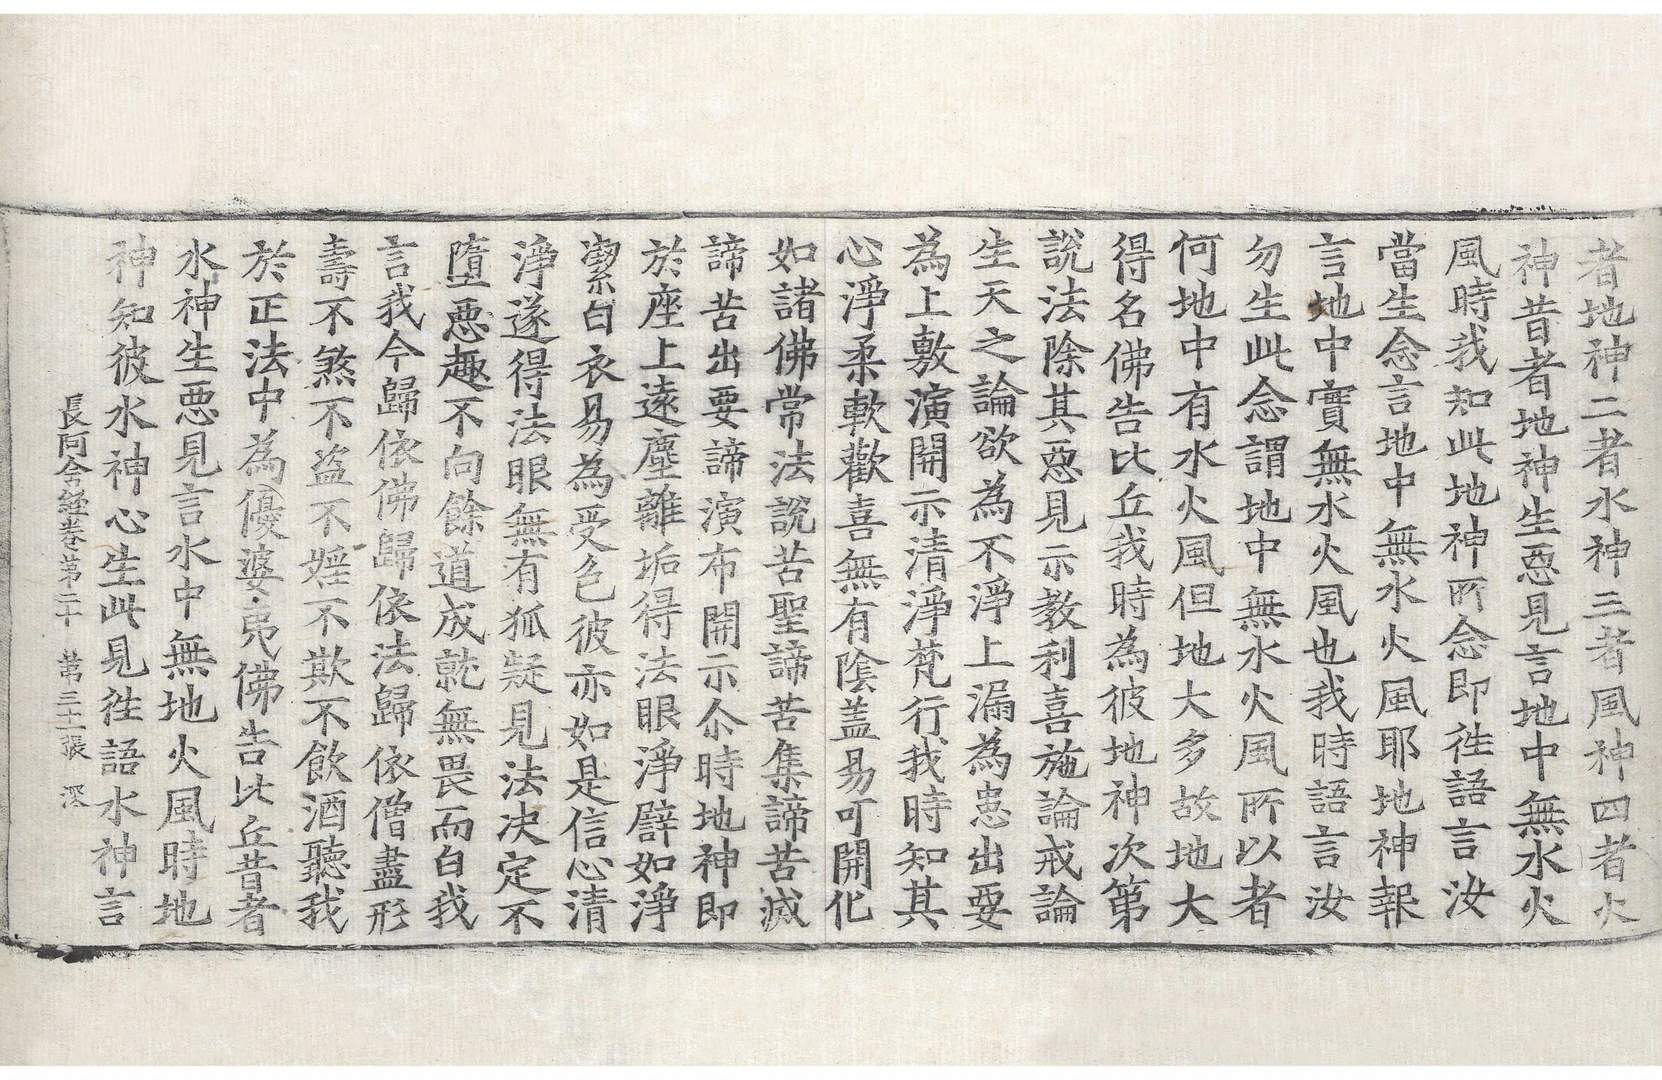 者地神二者水神三者風神四者火
神昔者地神生惡見言地中無水火
風時我知此地神所念即往語言汝
當生念言地中無水火風耶地神報
言地中實無水火風也我時語言汝
勿生此念謂地中無水火風所以者
何地中有水火風但地大多故地大
得名佛告比丘我時為彼地神次第
說法除其惡見示教利喜施論戒論
生天之論欲為不淨上漏為患出要
為上敷演開示清淨梵行我時知其
心淨柔軟歡喜無有陰蓋易可開化
如諸佛常法說苦聖諦苦集諦苦滅
諦苦出要諦演布開示尒時地神即
於座上遠塵離垢得法眼淨譬如淨
潔白衣易為受色彼亦如是信心清
淨遂得法眼無有狐疑見法决定不
墮惡趣不向餘道成就無畏而白我
言我今歸依佛歸依法歸依僧盡形
壽不煞不盜不婬不欺不飲酒聽我
於正法中為優婆夷佛告比丘昔者
水神生惡見言水中無地火風時地
神知彼水神心生此見往語水神言
長阿含経卷第二十 第三十二張 深